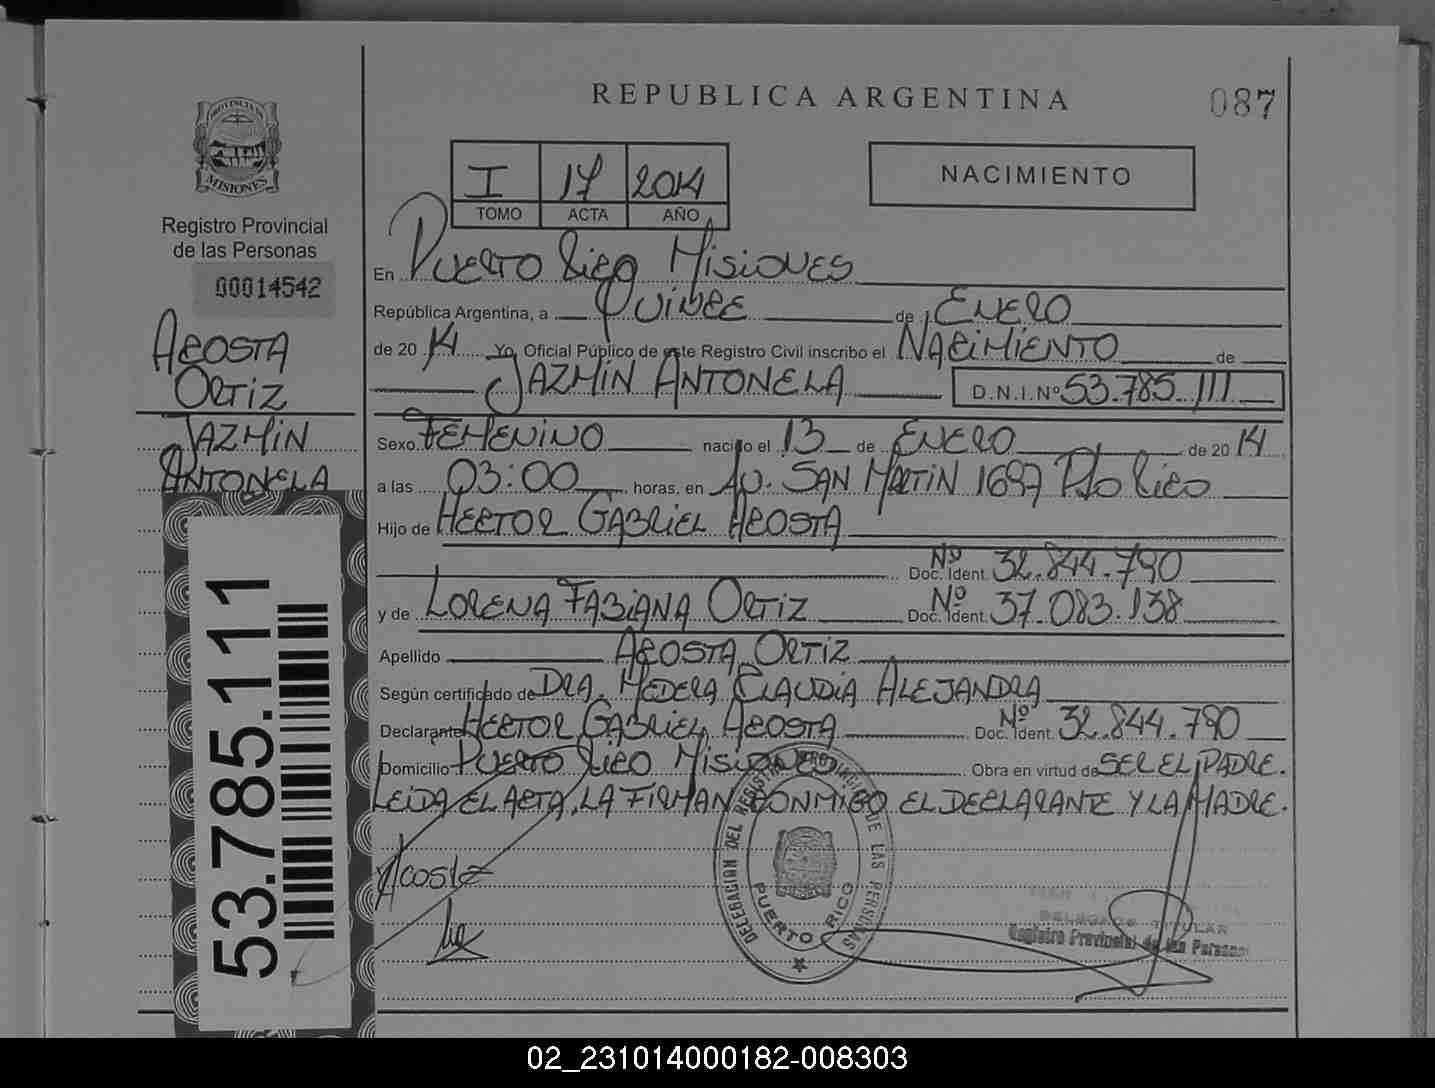 REPUBLICA ARGENTINA
087
PROVINCIA DE
MISIONES
Registro Provincial
de las Personas
00014542
I 17 2014
TOMO ACTA AÑO
NACIMIENTO
ACOSTA
ORTIZ
JAZMIN
ANTONELA
53.785.111
En PUERTO RICO MISIONES
República Argentina, a QUINCE de ENERO
de 2014 Yo, Oficial Público de este Registro Civil inscribo el NACIMIENTO de
JAZMIN ANTONELA D.N.I.Nº 53.785.111
Sexo FEMENINO nacido el 13 de ENERO de 2014
a las 03:00 horas, en AV. SAN MARTIN 1697 Pto RICO
Hijo de HECTOR GABRIEL ACOSTA
Doc. Ident. Nº 32.844.790
y de LORENA FABIANA ORTIZ Doc. Ident. Nº 37.083.138
Apellido ACOSTA ORTIZ
Según certificado de DRA. MEDERA CLAUDIA ALEJANDRA
Declarante HECTOR GABRIEL ACOSTA Doc. Ident. Nº 32.844.790
Domicilio PUERTO RICO MISIONES Obra en virtud de SER EL PADRE.
LEIDA EL ACTA, LA FIRMAN CONMIGO EL DECLARANTE Y LA MADRE.
Acosta
DELEGACION DEL REGISTRO PROVINCIAL DE LAS PERSONAS
PUERTO RICO
DELEGADO TITULAR
Registro Provincial de las Personas
02_231014000182-008303